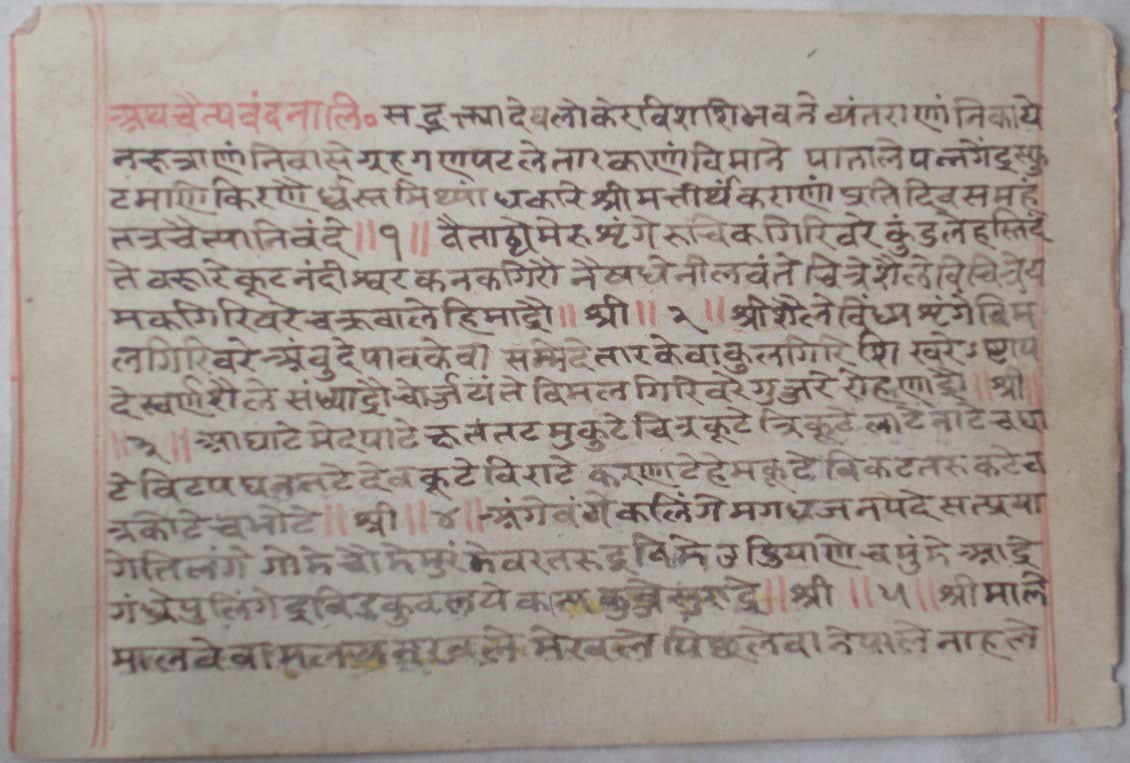 अथ चैत्यवंदना लि० सद्भक्त्या देवलोके रविशशिभवने व्यंतराणां निकाये
नक्षत्राणां निवासे ग्रहगणपटले तारकाणां विमाने पाताले पन्नगेंद्रस्फु
टमणिकिरणैर्ध्वस्तमिथ्यांधकारे श्रीमत्तीर्थंकराणां प्रतिदिवसमहं
तत्र चैत्यानि वंदे ॥ १ ॥ वैताढ्ये मेरुशृंगे रुचिकगिरिवरे कुंडले हस्तिदं
ते वक्षारे कूटनंदीश्वरकनकगिरौ नैषधे नीलवंते चित्रे शैले विचित्रे य
मकगिरिवरे चक्रवाले हिमाद्रौ ॥ श्री ॥ २ ॥ श्रीशैले विंध्यशृंगे विम
लगिरिवरे अंबुदे पावके वा सम्मेदे तारके वा कुलगिरिशिखरेऽष्टाप
दे स्वर्णशैले संध्याद्रौ चोर्जयंते विमलगिरिवरे गुजरे रोहणाद्रौ ॥ श्री ॥
॥ ३ ॥ आघाटे मेदपाटे क्षततटमुकुटे चित्रकूटे त्रिकूटे लाटे नाटे च घा
टे विटपघनतटे देवकूटे विराटे करणाटे हेमकूटे विकटतरकटे च
त्रकोटे च भोटे ॥ श्री ॥ ४ ॥ अंगे वंगे कलिंगे मगधजनपदे सत्प्रया
गे तिलंगे गौडे चौडे मुरंडे वरतरद्रविडे उडियाणे च पुंडे आद्रे
गंध्रे पुलिंगे द्रविडकुवलये सुराष्ट्रे ॥ श्री ॥ ५ ॥ श्रीमाले
मालवे वा मेखले पिछले वा नेपाले नाहले